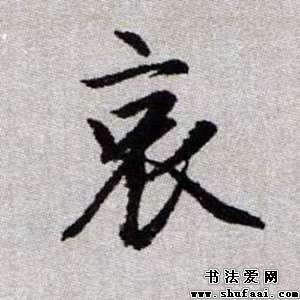 哀
书法爱网
www.shufaai.com